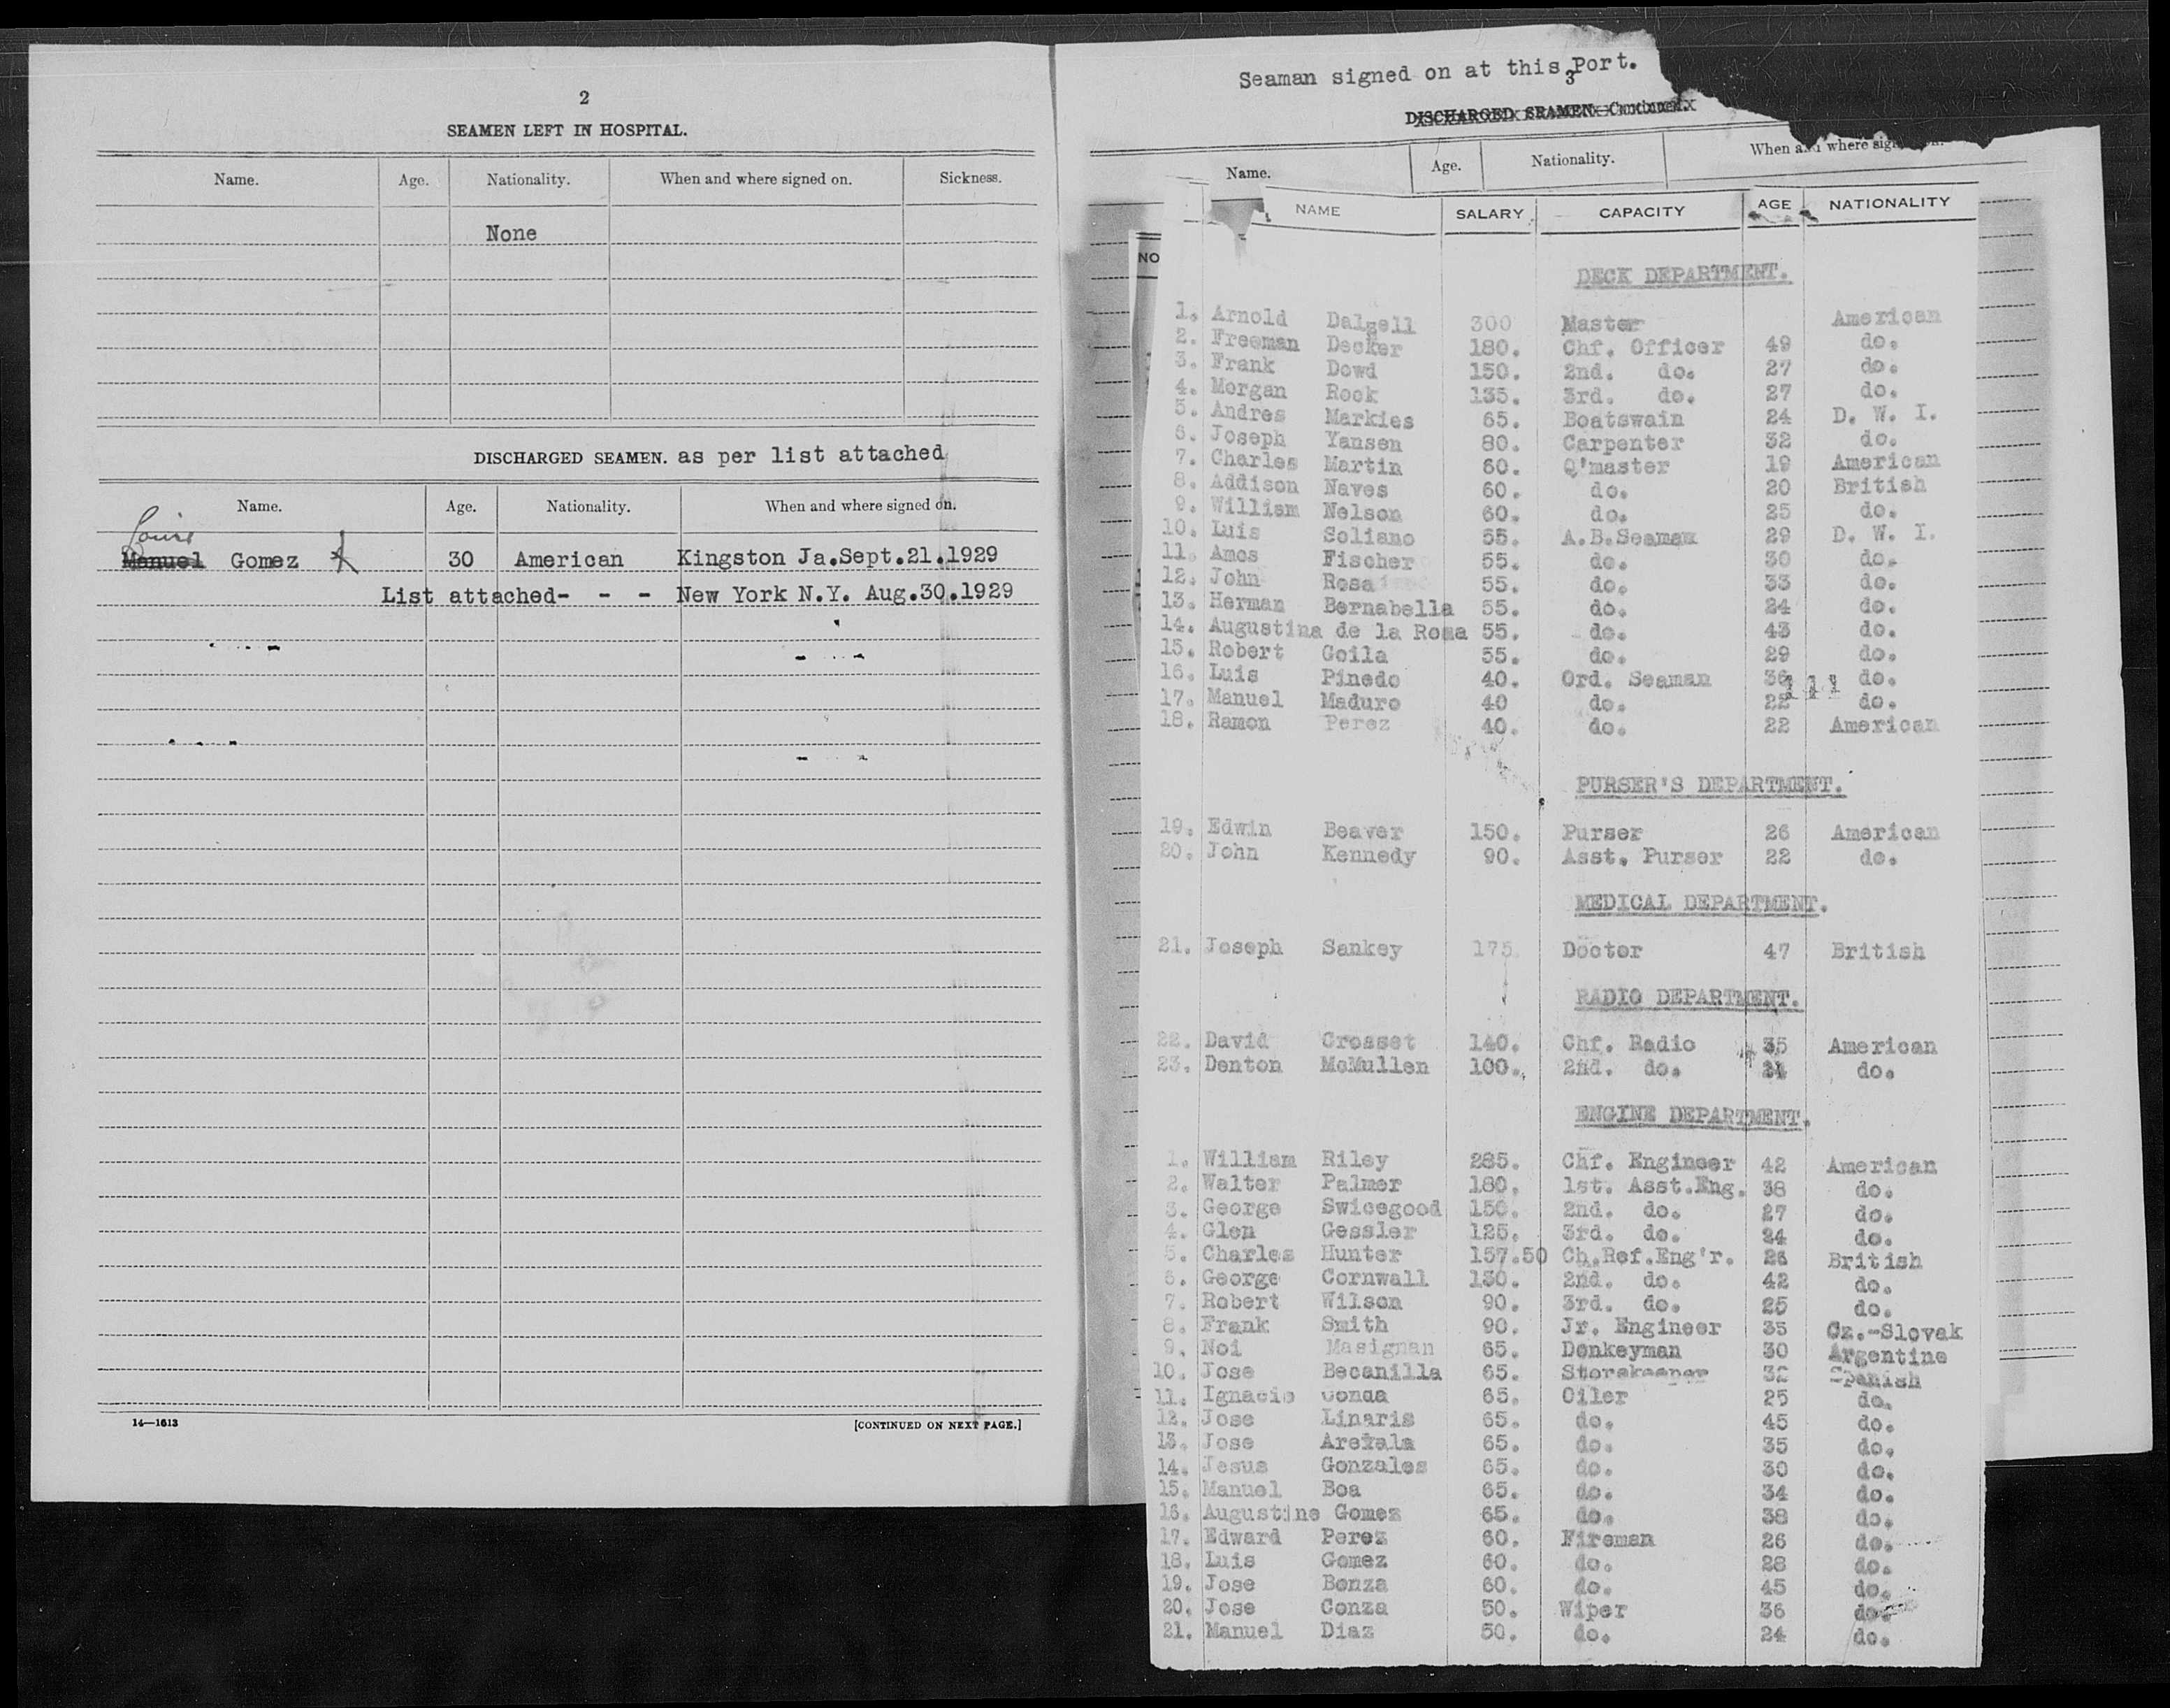 2
SEAMEN LEFT IN HOSPITAL.
Name. Age. Nationality. When and where signed on. Sickness.
None
DISCHARGED SEAMEN. as per list attached
Name. Age. Nationality. When and where signed on.
Louis
Manuel Gomez 30 American Kingston Ja.Sept.21.1929
List attached- - - New York N.Y. Aug.30.1929
14—1613 [CONTINUED ON NEXT PAGE.]
Seaman signed on at this Port.
3
DISCHARGED SEAMEN—Continued.
Name. Age. Nationality. When and where signed on.
NO
NAME SALARY CAPACITY AGE NATIONALITY
DECK DEPARTMENT.
1. Arnold Dalzell 300 Master American
2. Freeman Decker 180. Chf. Officer 49 do.
3. Frank Dowd 150. 2nd. do. 27 do.
4. Morgan Rook 135. 3rd. do. 27 do.
5. Andres Markies 65. Boatswain 24 D. W. I.
6. Joseph Yansen 80. Carpenter 32 do.
7. Charles Martin 60. Q'master 19 American
8. Addison Naves 60. do. 20 British
9. William Nelson 60. do. 25 do.
10. Luis Soliano 55. A.B.Seaman 29 D. W. I.
11. Amos Fischer 55. do. 30 do.
12. John Rosa 55. do. 33 do.
13. Herman Bernabella 55. do. 24 do.
14. Augustina de la Rosa 55. do. 43 do.
15. Robert Goila 55. do. 29 do.
16. Luis Pinedo 40. Ord. Seaman 36 do.
17. Manuel Maduro 40 do. 22 do.
18. Ramon Perez 40. do. 22 American
PURSER'S DEPARTMENT.
19. Edwin Beaver 150. Purser 26 American
20. John Kennedy 90. Asst. Purser 22 do.
MEDICAL DEPARTMENT.
21. Joseph Sankey 175 Doctor 47 British
RADIO DEPARTMENT.
22. David Crosset 140. Chf. Radio 35 American
23. Denton McMullen 100. 2nd. do. do.
ENGINE DEPARTMENT.
1. William Riley 285. Chf. Engineer 42 American
2. Walter Palmer 180. 1st. Asst.Eng. 38 do.
3. George Swicegood 150. 2nd. do. 27 do.
4. Glen Gessler 125. 3rd. do. 24 do.
5. Charles Hunter 157.50 Ch.Ref.Eng'r. 26 British
6. George Cornwall 130. 2nd. do. 42 do.
7. Robert Wilson 90. 3rd. do. 25 do.
8. Frank Smith 90. Jr. Engineer 35 Cz.-Slovak
9. Noi Masignan 65. Donkeyman 30 Argentine
10. Jose Becanilla 65. Storekeeper 32 Spanish
11. Ignacio Conda 65. Oiler 25 do.
12. Jose Linaris 65. do. 45 do.
13. Jose 65. do. 35 do.
14. Jesus Gonzales 65. do. 30 do.
15. Manuel Boa 65. do. 34 do.
16. Augustine Gomez 65. do. 38 do.
17. Edward Perez 60. Fireman 26 do.
18. Luis Gomez 60. do. 28 do.
19. Jose Bonza 60. do. 45 do.
20. Jose Conza 50. Wiper 36 do.
21. Manuel Diaz 50. do. 24 do.